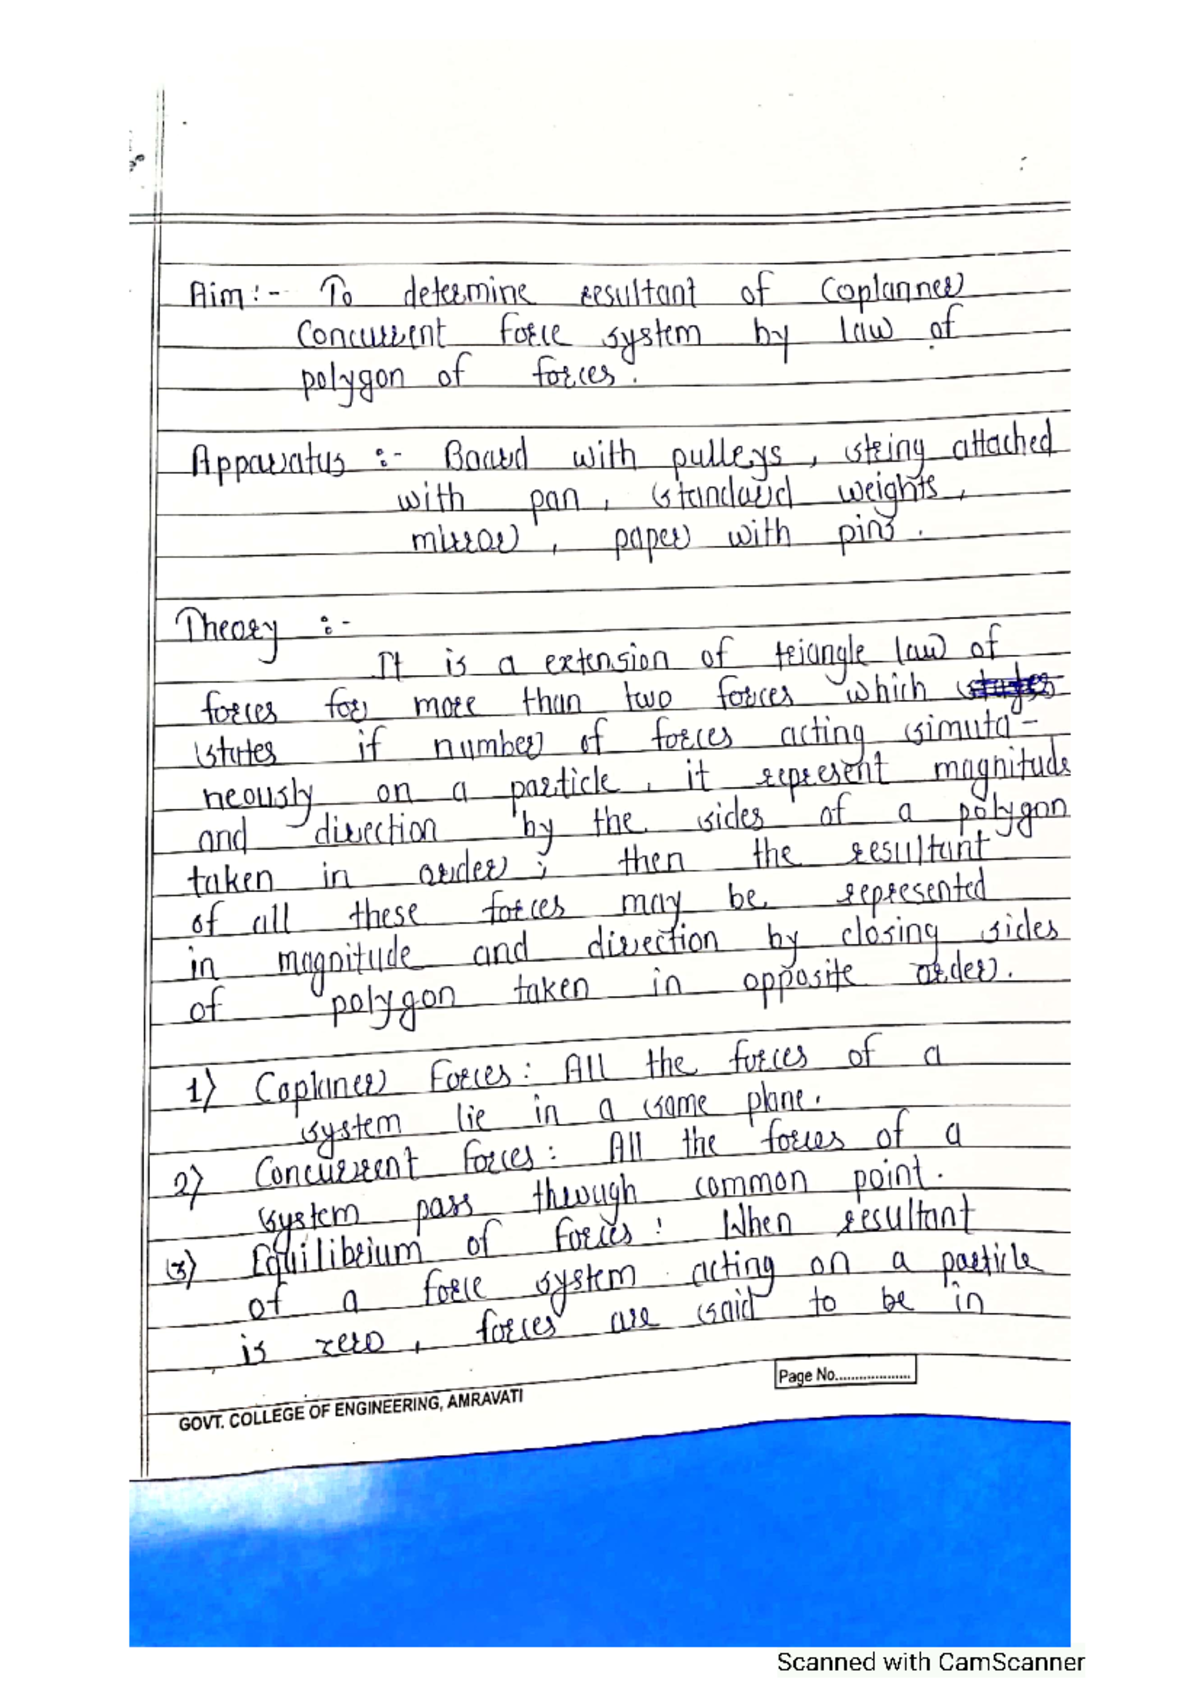 Aim :- To determine resultant of Coplanner
Concurrent force system by law of
polygon of forces.
Apparatus :- Board with pulleys, string attached
with pan, standard weights,
mirror, paper with pins.
Theory :-
It is a extension of triangle law of
forces for more than two forces which
states if number of forces acting simuta-
neously on a particle, it represent magnitude
and direction by the sides of a polygon
taken in order; then the resultant
of all these forces may be represented
in magnitude and direction by closing sides
of polygon taken in opposite order.
1) Coplaner Forces: All the forces of a
system lie in a same plane.
2) Concurrent forces: All the forces of a
system pass through common point.
(3) Equilibrium of Forces: When resultant
of a force system acting on a particle
is zero, forces are said to be in
Page No...................
GOVT. COLLEGE OF ENGINEERING, AMRAVATI
Scanned with CamScanner